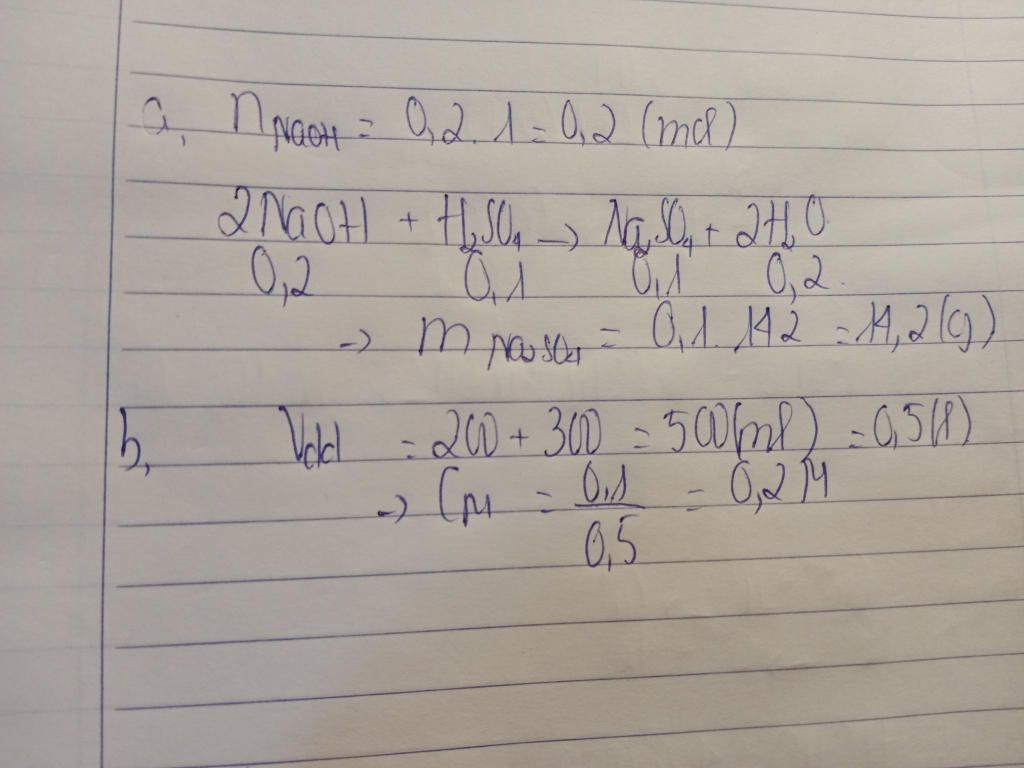 a, nNaOH = 0,2 . 1 = 0,2 (mol)
2NaOH + H2SO4 → Na2SO4 + 2H2O
0,2 0,1 0,1 0,2.
→ mNa2SO4 = 0,1. 142 = 14,2 (g)
b, Vdd = 200 + 300 = 500 (ml) = 0,5 (l)
→ CM = 0,1 / 0,5 = 0,2 M